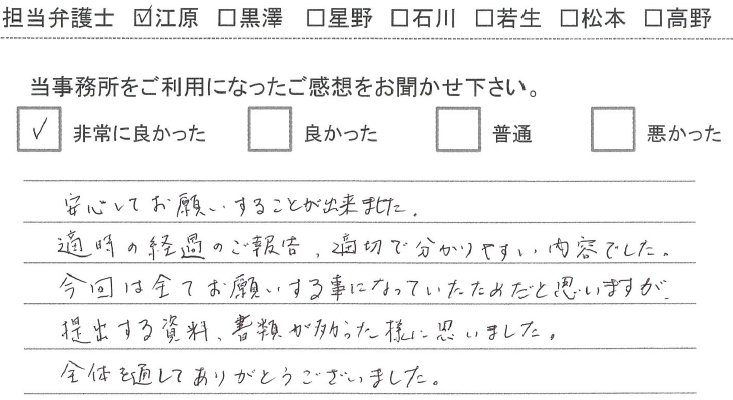 担当弁護士 ☑江原 □黒澤 □星野 □石川 □若生 □松本 □高野
当事務所をご利用になったご感想をお聞かせ下さい。
☑ 非常に良かった □ 良かった □ 普通 □ 悪かった
安心してお願いすることが出来ました。
適時の経過のご報告、適切で分かりやすい内容でした。
今回は全てお願いする事になっていたためだと思いますが、
提出する資料、書類が多かった様に思いました。
全体を通してありがとうございました。